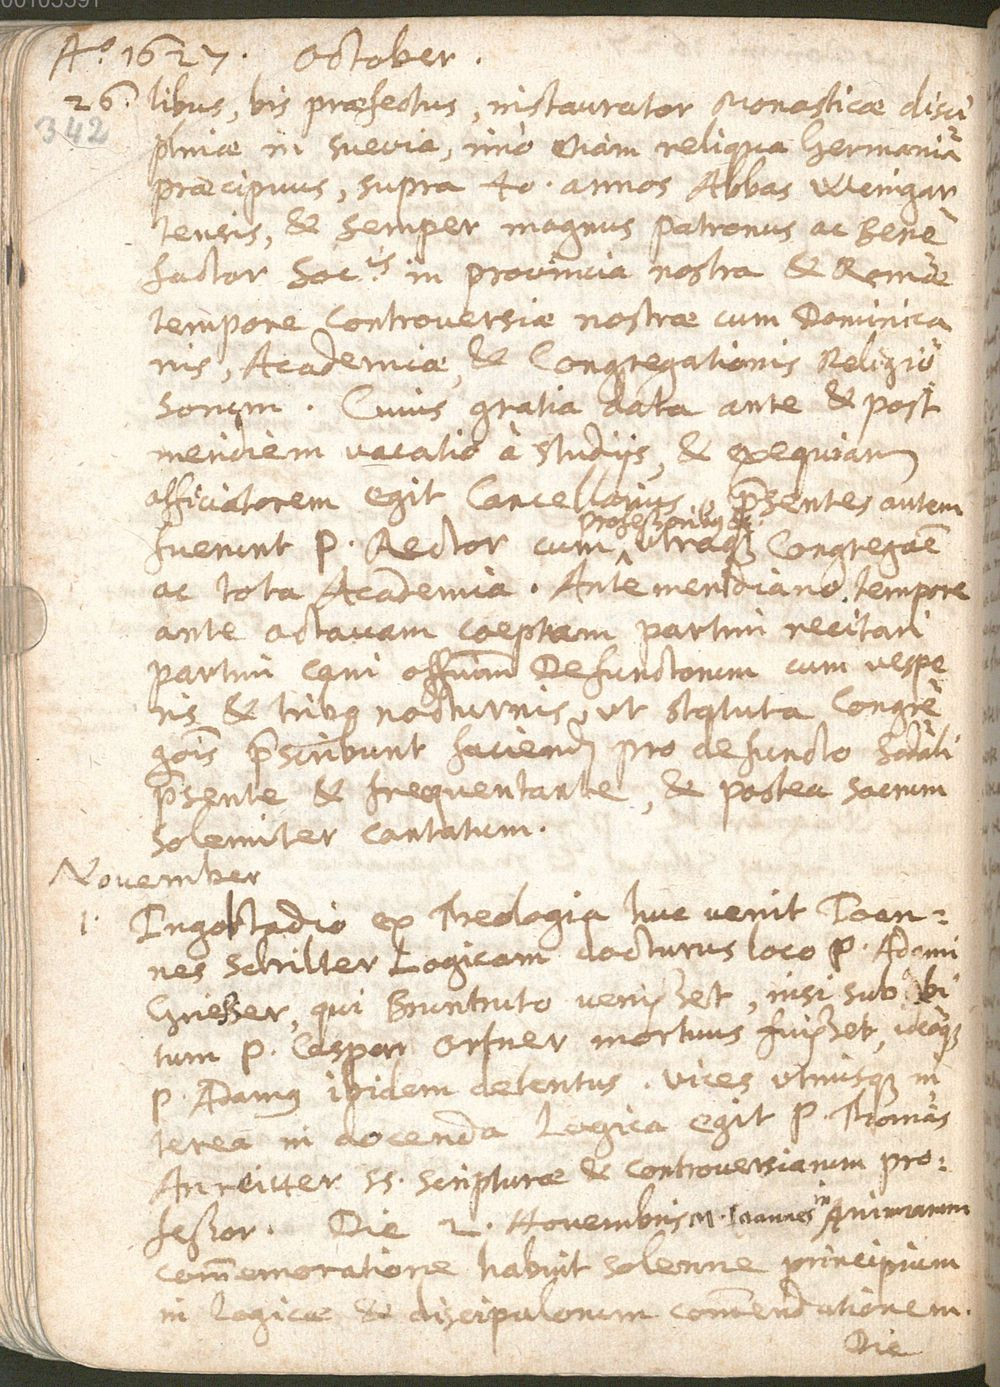 00103391
Aº 1627. October.
26. libus, bis præfectus, instaurator Monasticæ disci
342
plinæ in Suevia, imò etiam reliqua Germania
præcipuus, supra 40. annos Abbas Weingar
tensis, & semper magnus patronus ac Bene
factor Soc.is in provincia nostra & Romæ
tempore controversiæ nostræ cum Dominica
nis, Academiæ, & Congregationis Religio
sorum. Cuius gratia data ante & post
meridiem vacatio à studijs, & exequiarum
officiatorem egit Cancellarius, p̄sentes autem
professoribus &
fuerunt P. Rector cum utraq3 Congregaōe
ac tota Academia. Ante meridiano tempore
ante octavam coeptum partim recitari
partim cani offium Defunctorum cum vespe
ris & tribq nocturnis, ut statuta Congre
gōis p̄scribunt faciend pro defuncto Sodali
p̄sente & frequentante, & postea sacrum
solemniter cantatum.
November
1. Ingolstadio ex Theologia huc venit Ioan=
nes Schilter Logicam docturus loco P. Adami
Grießer, qui Bruntruto venißet, nisi sub bi
tum P. Caspar Ortner mortuus fuißet, ideoq3
P. Adamq ibidem detentus. Vices utriusq3 in
terea in docenda Logica egit P. Thomas
Anreitter SS. Scripturæ & Controversiarum pro=
feßor. Die 2. Novembris M. Ioannes in Animarum
com̄emoratione habuit solenne principium
in Logicæ & discipulorum com̄endationem.
Die